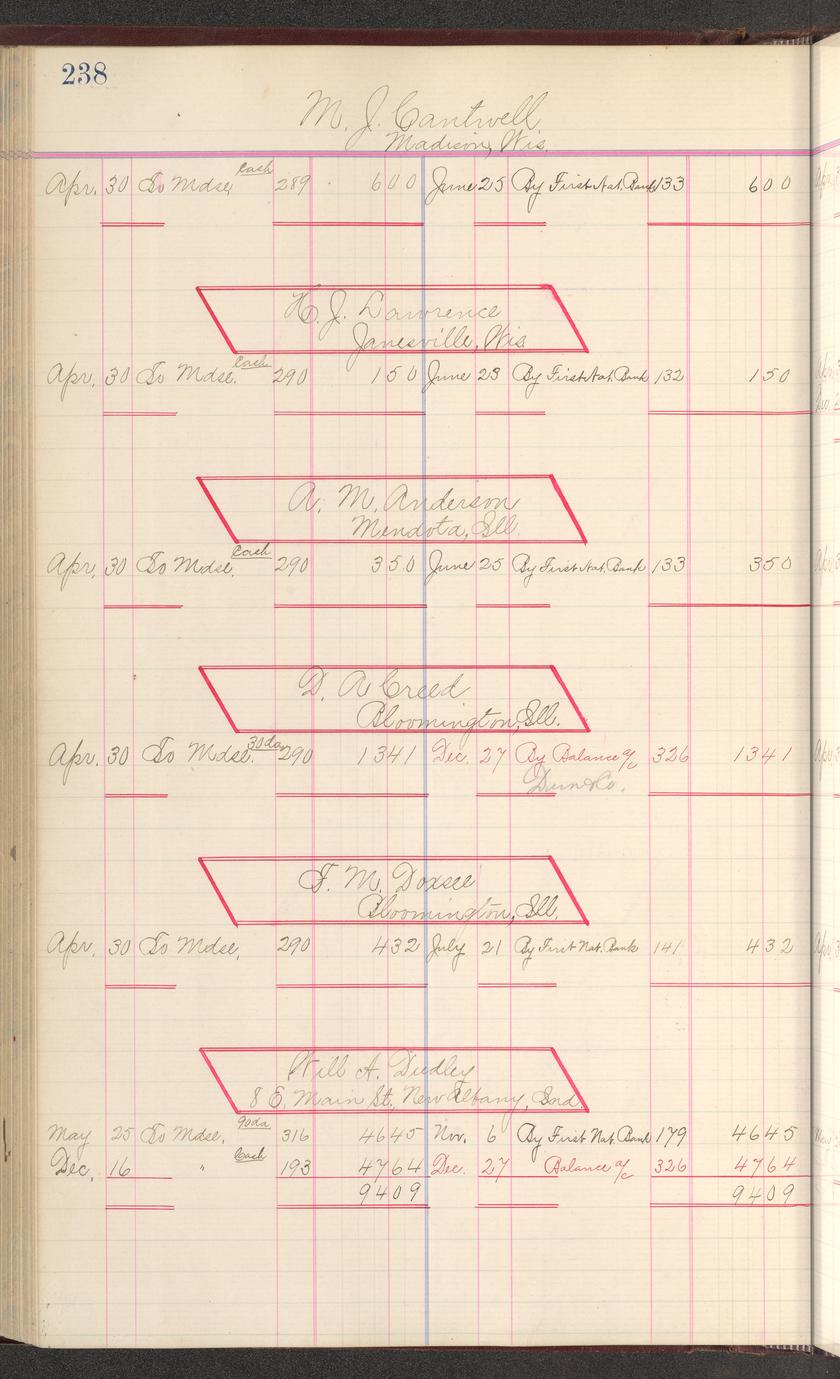 238
M. J. Cantwell
Madison, Wis.
Apr. 30 To Mdse Cash 289 600 June 25 By First Nat. Bank 133 600
H. J. Lawrence
Janesville, Wis
Apr. 30 To Mdse. Cash 290 150 June 23 By First Nat. Bank 132 150
A. M. Anderson
Mendota, Ill.
Apr. 30 To Mdse. Cash 290 350 June 25 By First Nat. Bank 133 350
D. A Creed
Bloomington, Ill.
Apr. 30 To Mdse. 30 da 290 1341 Dec. 27 By Balance a/c 326 1341
Dun & Co.
F. M. Doxsee
Bloomington, Ill.
Apr. 30 To Mdse, 290 432 July 21 By First Nat. Bank 141 432
Will A. Dudley
8 E. Main St., New Albany, Ind.
May 25 To Mdse. 90 da 316 4645 Nov. 6 By First Nat. Bank 179 4645
Dec. 16 " Cash 193 4764 Dec. 27 Balance a/c 326 4764
9409 9409